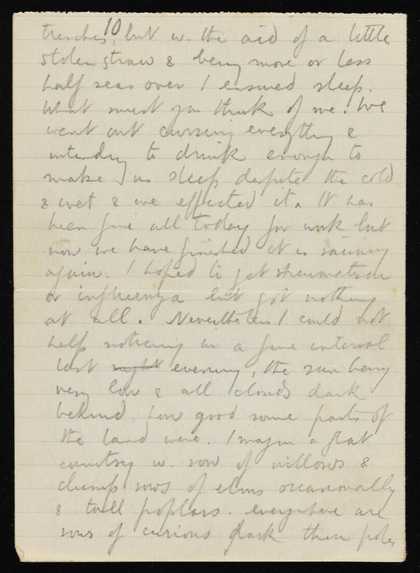 10
trenches, but w. the aid of a little
stolen straw & being more or less
half seas over I ensured sleep.
What must you think of me. We
went out cursing everything &
intending to drink enough to
make us sleep despite the cold
& wet & we effected it. It has
been fine all today for work but
now we have finished it is raining
again. I hoped to get rheumatism
or influenza but got nothing
at all. Nevertheless I could not
help noticing in a fine interval
last night evening, the sun being
very low & all clouds dark
behind, how good some parts of
the land were. Imagine a flat
country w. rows of willows &
clumps rows of elms occasionally
& tall poplars. everywhere are
rows of curious dark thin poles